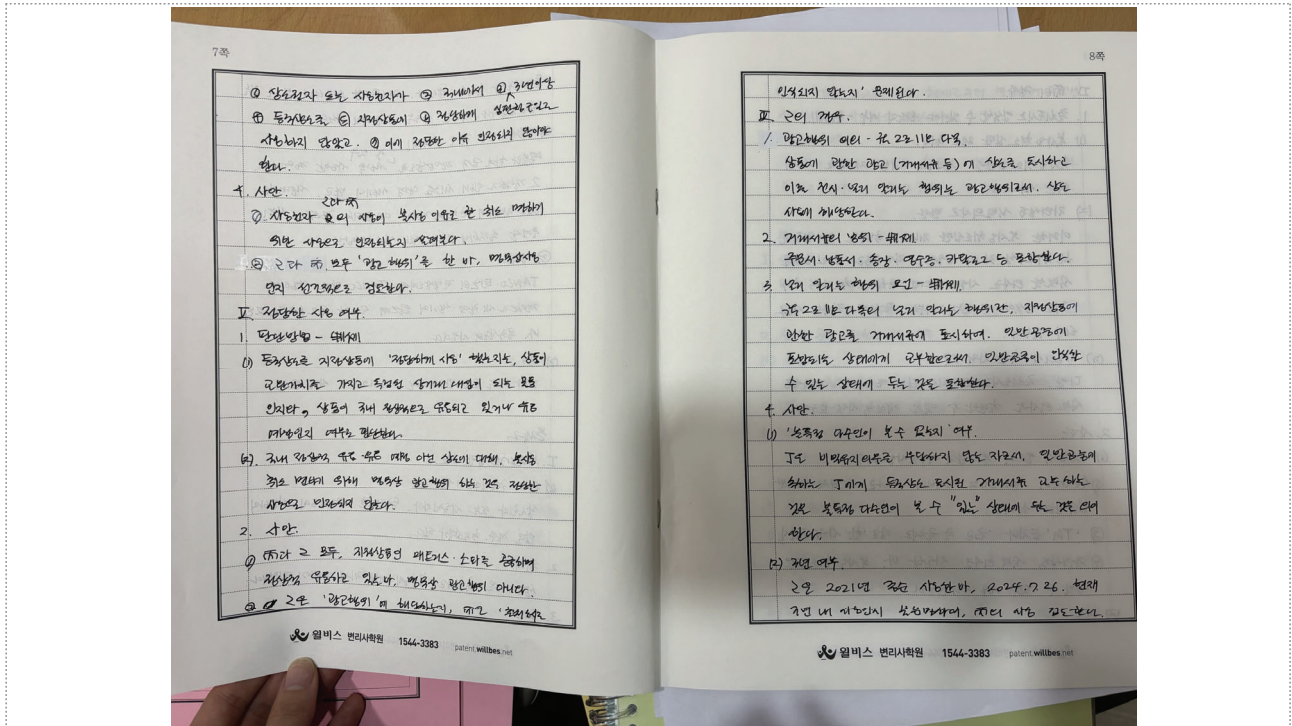 7쪽
① 상표권자 또는 사용권자가 ② 국내에서 ④ 3년이상
⑤ 등록상표를 ⑥ 지정상품에 정당하게 심판청구일전
사용하지 않았고, 이에 정당한 이유 인정되지 않아야
한다.
4. 사안.
ㄹ다 丙
① 사용권자 의 사용이 불사용 이유로 한 취소 면하기
위한 사용으로 인정되는지 살펴본다.
② ㄹ다 丙, 모두 '광고행위'를 한 바, 명목상사용
인지 선결적으로 검토한다.
Ⅱ. 정당한 사용 여부.
1. 판단방법 - 判例
(1) 등록상표를 지정상품에 '정당하게 사용' 했는지는, 상품이
교환가치를 가지고 독립된 상거래 대상이 되는 물품
인지와, 상품이 국내 정상적으로 유통되고 있거나 유통
예정인지 여부로 판단한다.
(2). 국내 정상적 유통·유통 예정 아닌 상품에 대해, 불사용
취소 면하기 위해 명목상 광고행위 하는 것은 정당한
사용으로 인정되지 않는다.
2. 사안.
① 丙다 ㄹ 모두, 지정상품인 매트리스·소파를 공급하며
정상적 유통하고 있는바, 명목상 광고행위 아니다.
② ㄹ은 '광고행위'에 해당하는지,
윌비스 변리사학원 1544-3383 patent.willbes.net
8쪽
인식되지 않는지' 문제된다.
Ⅲ. ㄹ의 경우.
1. 광고행위 의의 - 法 2조 11호 다목
상품에 관한 광고 (거래서류 등)에 상표를 표시하고
이를 전시·널리 알리는 행위는 광고행위로서, 상표
사용에 해당한다.
2. 거래서류의 범위 - 判例.
주문서·납품서·송장·영수증·카탈로그 등 포함한다.
3. 널리 알리는 행위 요건 - 判例.
法 2조 11호 다목의 널리 알리는 행위란, 지정상품에
관한 광고를 거래서류에 표시하여, 일반공중에
포함되는 상대에게 교부함으로써, 일반공중이 인식할
수 있는 상태에 두는 것을 포함한다.
4. 사안.
(1) '불특정 다수인이 볼 수 있는지' 여부.
J은 비밀유지의무를 부담하지 않는 자로서, 일반공중에
속하는 J에게 등록상표 표시된 거래서류 교부하는
것은 불특정 다수인이 볼 수 "있는" 상태에 두는 것을 의미
한다.
(2) 3년 여부.
ㄹ은 2021년 사용한바, 2024.7.26. 현재
3년 내 丙의 사용 검토한다.
윌비스 변리사학원 1544-3383 patent.willbes.net